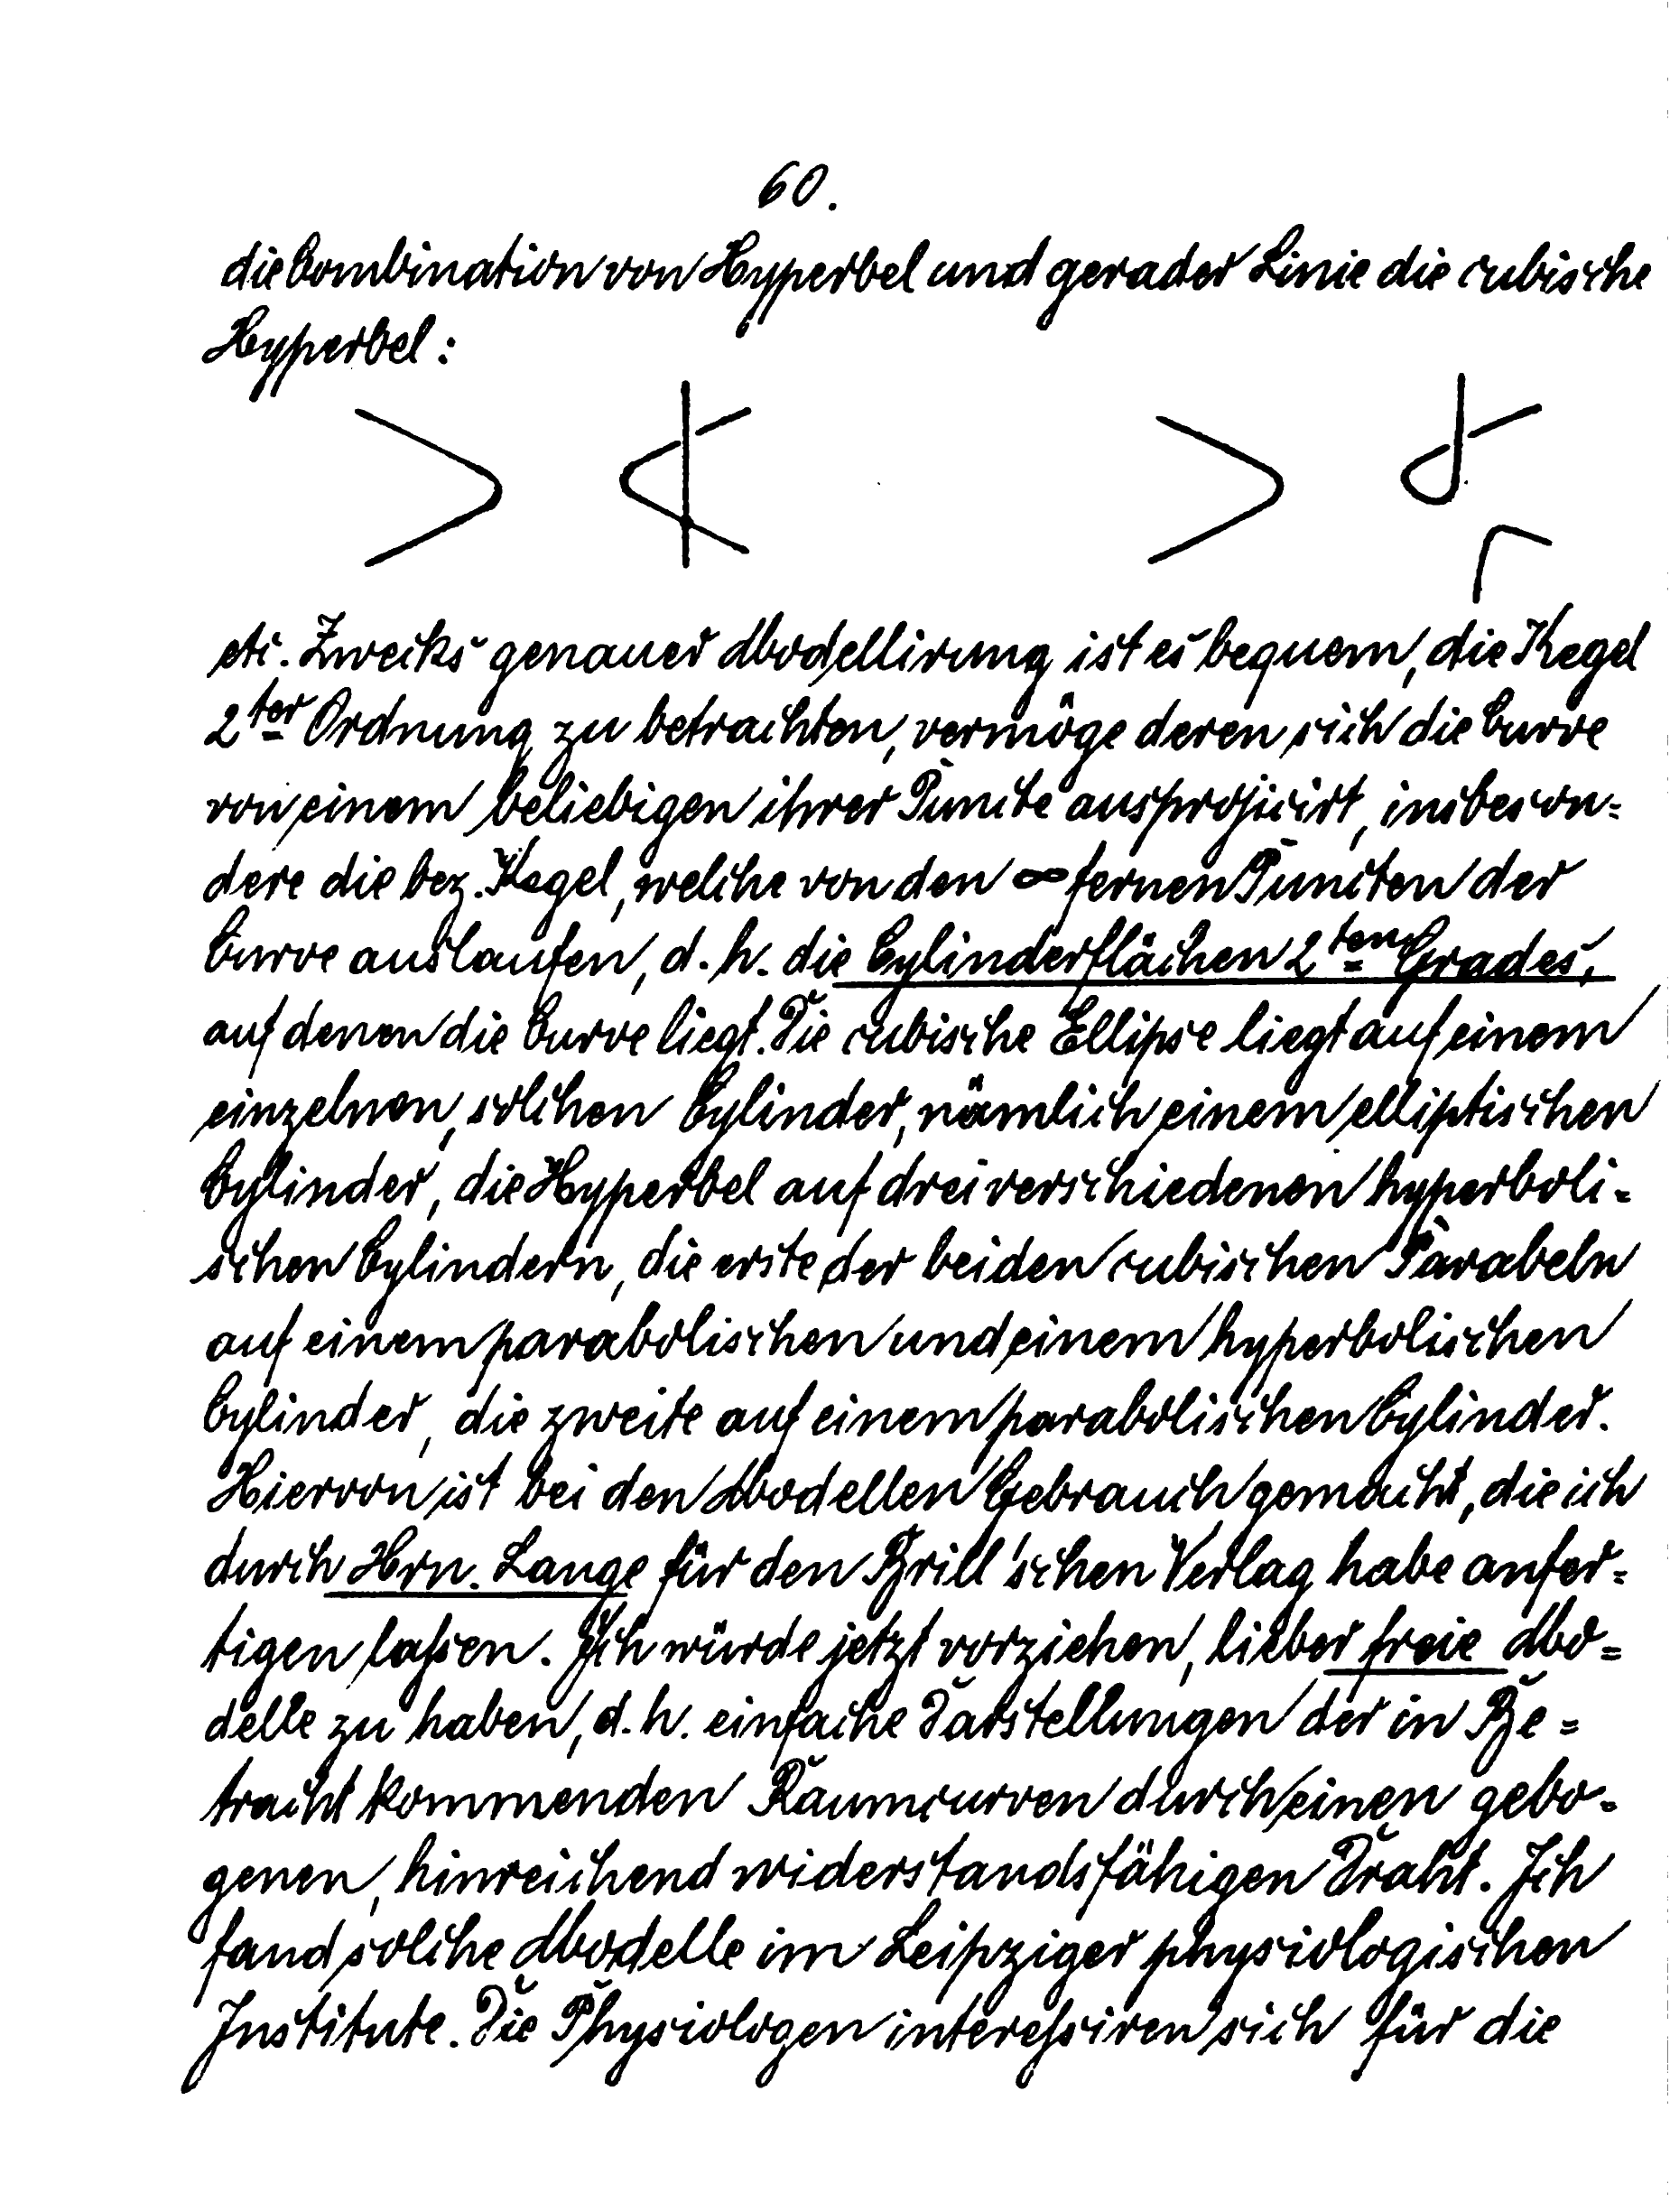 60.
die Combination von Hyperbel und gerader Linie die cubische
Hyperbel:
etc. Zwecks genauer Modellirung ist es bequem, die Kegel
2ter Ordnung zu betrachten, vermöge deren sich die Curve
von einem beliebigen ihrer Puncte aus projicirt, insbeson=
dere die bez. Kegel, welche von den ∞ fernen Puncten der
Curve auslaufen, d. h. die Cylinderflächen 2ten Grades,
auf denen die Curve liegt. Die cubische Ellipse liegt auf einem
einzelnen, solchen Cylinder, nämlich einem elliptischen
Cylinder, die Hyperbel auf drei verschiedenen hyperboli=
schen Cylindern, die erste der beiden cubischen Parabeln
auf einem parabolischen und einem hyperbolischen
Cylinder, die zweite auf einem parabolischen Cylinder.
Hiervon ist bei den Modellen Gebrauch gemacht, die ich
durch Hrn. Lange für den Brill'schen Verlag habe anfer=
tigen laßen. Ich würde jetzt vorziehen, lieber freie Mo=
delle zu haben, d. h. einfache Darstellungen der in Be=
tracht kommenden Raumcurven durch einen gebo=
genen, hinreichend widerstandsfähigen Draht. Ich
fand solche Modelle im Leipziger physiologischen
Institute. Die Physiologen intereßiren sich für die